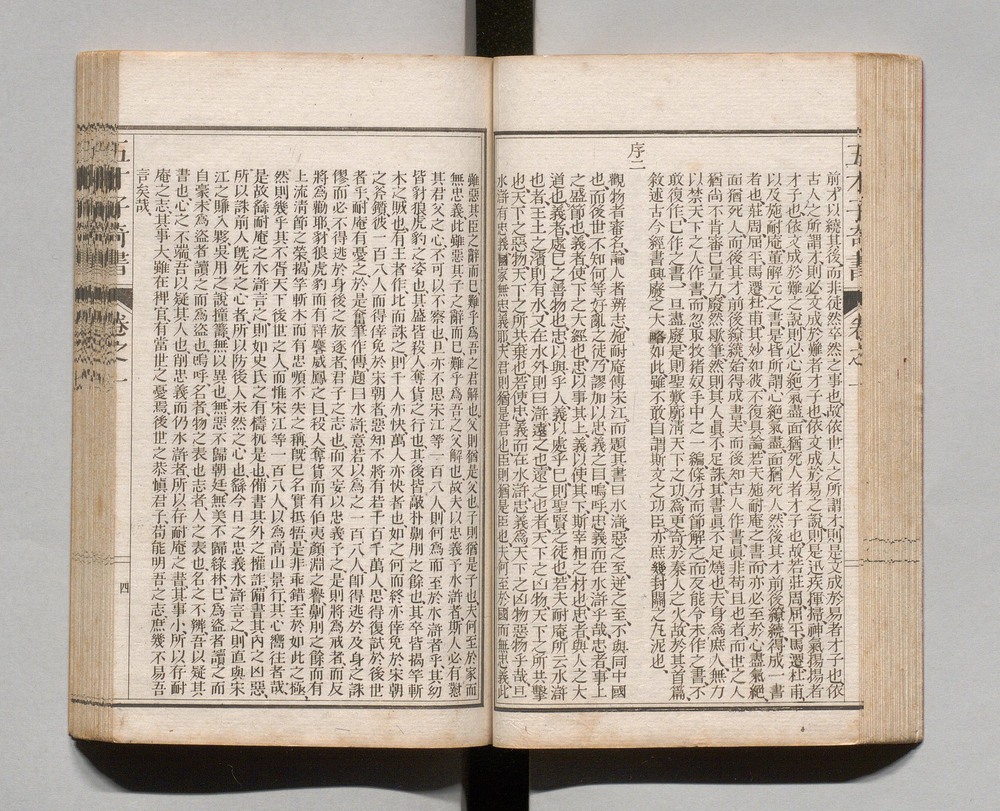 前才以繞其後而非徒然卒然之事也故依世人之所謂才則是文成於易者才子也依
古人之所謂才則必文成於難者才子也依文成於易之說則是迅疾揮掃神氣揚揚者
才子也依文成於難之說則必心絕氣盡面猶死人者才子也故若莊周屈平馬遷杜甫
以及施耐庵董解元之書是皆所謂心絕氣盡面猶死人然後其才前後繚繞得成一書
者也莊周屈平馬遷杜甫其妙如彼不復具論若夫施耐庵之書而亦必至於心盡氣絕
面猶死人而後其才前後繚繞始得成書夫而後知古人作書眞非苟且也者而世之人
猶尚不肯審己量力廢然歇筆然則其人眞不足誅其書眞不足燒也夫身爲庶人無力
以禁天下之人作書而忽取牧猪奴手中之一編條分而節解之而反能令未作之書不
敢復作已作之書一旦盡廢是則聖歎廓淸天下之功爲更奇於秦人之火故於其首篇
敘述古今經書興廢之大略如此雖不敢自謂斯文之功臣亦庶幾封關之丸泥也
序二
觀物者審名論人者辨志施耐庵傳宋江而題其書曰水滸惡之至迸之至不與同中國
也而後世不知何等好亂之徒乃謬加以忠義之目嗚呼忠義而在水滸乎哉忠者事上
之盛節也義者使下之大經也忠以事其上義以使其下斯宰相之材也忠者與人之大
道也義者處己之善物也忠以與乎人義以處乎己則聖賢之徒也若夫耐庵所云水滸
也者王土之濱則有水又在水外則曰滸遠之也遠之也者天下之凶物天下之所共擊
也天下之惡物天下之所共棄也若使忠義而在水滸忠義爲天下之凶物惡物乎哉且
水滸有忠義國家無忠義耶夫君則猶是君也臣則猶是臣也夫何至於國而無忠義此
雖惡其臣之辭而已難乎爲吾之君解也父則猶是父也子則猶是子也夫何至於家而
無忠義此雖惡其子之辭而已難乎爲吾之父解也故夫以忠義予水滸者斯人必有懟
其君父之心不可以不察也且亦不思宋江等一百八人則何爲而至於水滸者乎其幼
皆豺狼虎豹之姿也其壯皆殺人奪貨之行也其後皆敲朴劓刖之餘也其卒皆揭竿斬
木之賊也有王者作比而誅之則千人亦快萬人亦快者也如之何而終亦倖免於宋朝
之斧鑕彼一百八人而得倖免於宋朝者惡知不將有若干百千萬人思得復試於後世
者乎耐庵有憂之於是奮筆作傳題曰水滸意若以爲之一百八人卽得逃於及身之誅
僇而必不得逃於身後之放逐者君子之志也而又妄以忠義予之是則將爲戒者而反
將爲勸耶豺狼虎豹而有祥麟威鳳之目殺人奪貨而有伯夷顏淵之譽劓刖之餘而有
上流淸節之榮揭竿斬木而有忠順不失之稱旣已名實抵牾是非乖錯至於如此之極
然則幾乎其不胥天下後世之人而惟宋江等一百八人以爲高山景行其心嚮往者哉
是故繇耐庵之水滸言之則如史氏之有檮杌是也備書其外之權詐備書其內之凶惡
所以誅前人旣死之心者所以防後人未然之心也繇今日之忠義水滸言之則直與宋
江之賺入夥吳用之說撞籌無以異也無惡不歸朝廷無美不歸綠林已爲盜者讀之而
自豪未爲盜者讀之而爲盜也嗚呼名者物之表也志者人之表也名之不辨吾以疑其
書也心之不端吾以疑其人也削忠義而仍水滸者所以存耐庵之書其事小所以存耐
庵之志其事大雖在稗官有當世之憂焉後世之恭愼君子苟能明吾之志庶幾不易吾
言矣哉
四